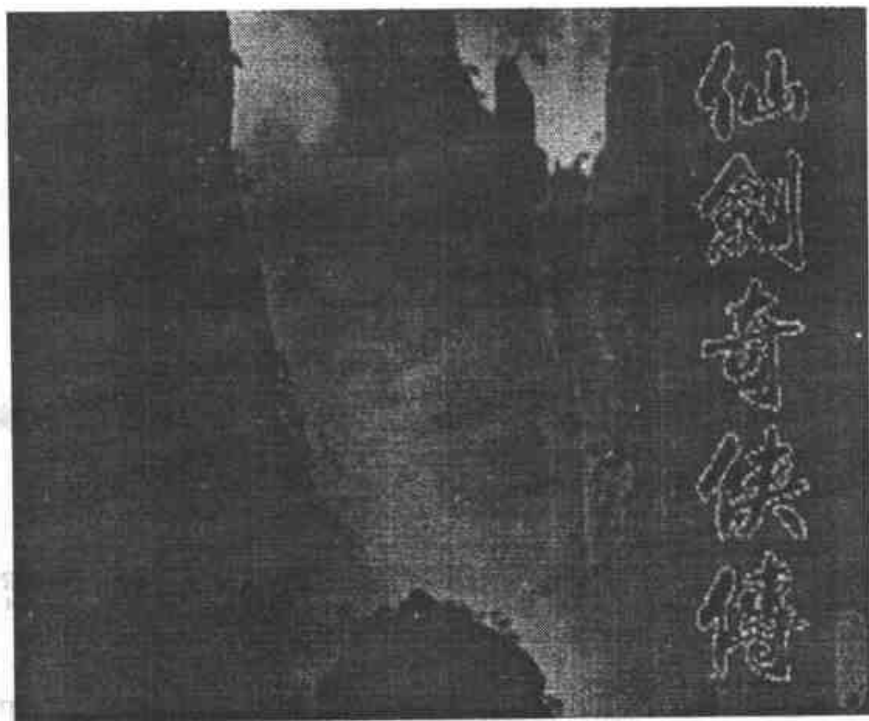 仙劍奇俠傳